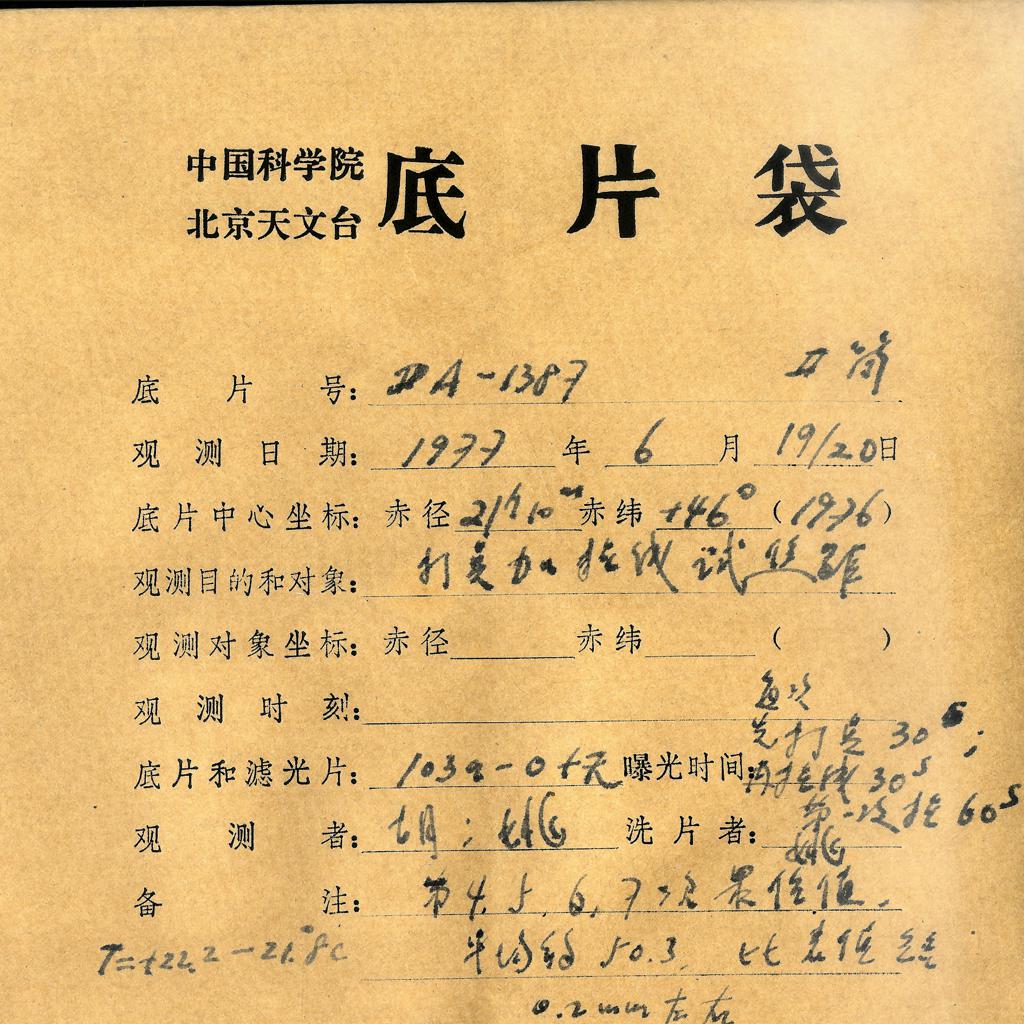 中国科学院
北京天文台
底片袋
底片号: ⅡA-1387 Ⅱ筒
观测日期: 1977年6月19/20日
底片中心坐标: 赤径21h10m赤纬+46°(1976)
观测目的和对象: 打点加拉线试焦距
观测对象坐标: 赤径 赤纬 ( )
观测时刻:
每次
先打点30s;
底片和滤光片: 103a-0+无 曝光时间: 再拉线30s
第一次拉60s
观测者: 胡;姚 洗片者: 姚
备注: 第4.5.6.7次最佳值.
T=+22.2-21.8c 平均约50.3, 比表值
0.2mm左右